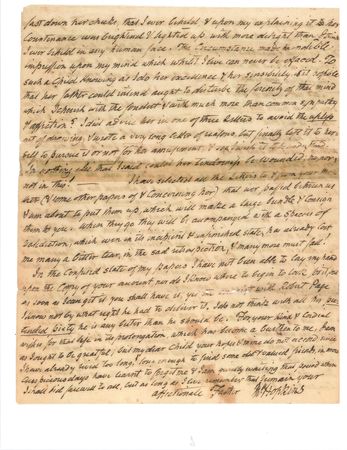 fast down her cheeks, that I ever beheld & upon my explaining it to her
Countenance was brightened & lighted up with more delight than
I ever beheld in any human face. The Circumstance made an indelible
impression upon my mind which whilst I live can never be effaced. To
such a Child knowing as I do her excellence & her sensibility, is it possible
that her father could intend aught to disturb the serenity of that mind
which I cherish with the fondest & with much more than common sympathy
& affection? I did advise her in one of these letters to avoid the
art of dancing, I wrote a very long letter of reasons, but finally left it to her
self to pursue it or not for her amusement,
in nothing else, that I said could her tenderness be wounded,
not in this. I have selected all the letters to & from your
& some other papers of & Concerning her) that ever passed between us
& am about to put them up, which will make a large bundle & Consign
them to you. when they go they will be accompanied with a Species of
Dedication, which even in its incipient & unfinished state, has already cost
me many a bitter tear, in the sad retrospection, & many more must fall.
In the Confused state of my papers I have not been able to lay my hand
upon the Copy of your account nor do I know where to begin to look, but
as soon as I can get it you shall have it, Robert Page
I know not by what right he had to deliver it, I do not think with all his
he is any better than he should be. For your kind & Cordial
wishes for that life in its prolongation which has become a burthen to me, I am
as I ought to be grateful; but my dear Child your hopes & mine do not accord since
I have already lived too long, long enough to find some old valued friends, in more
days have learnt to forget me & I am quietly waiting that period when
I shall bid farewell to all, but as long as I live remember that I remain your
affectionate Father
Hopkins